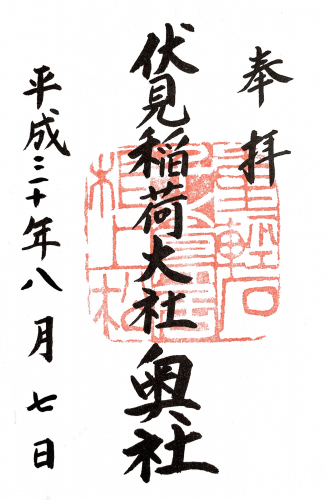 奉拝
伏見稲荷大社奥社
平成三十年八月七日